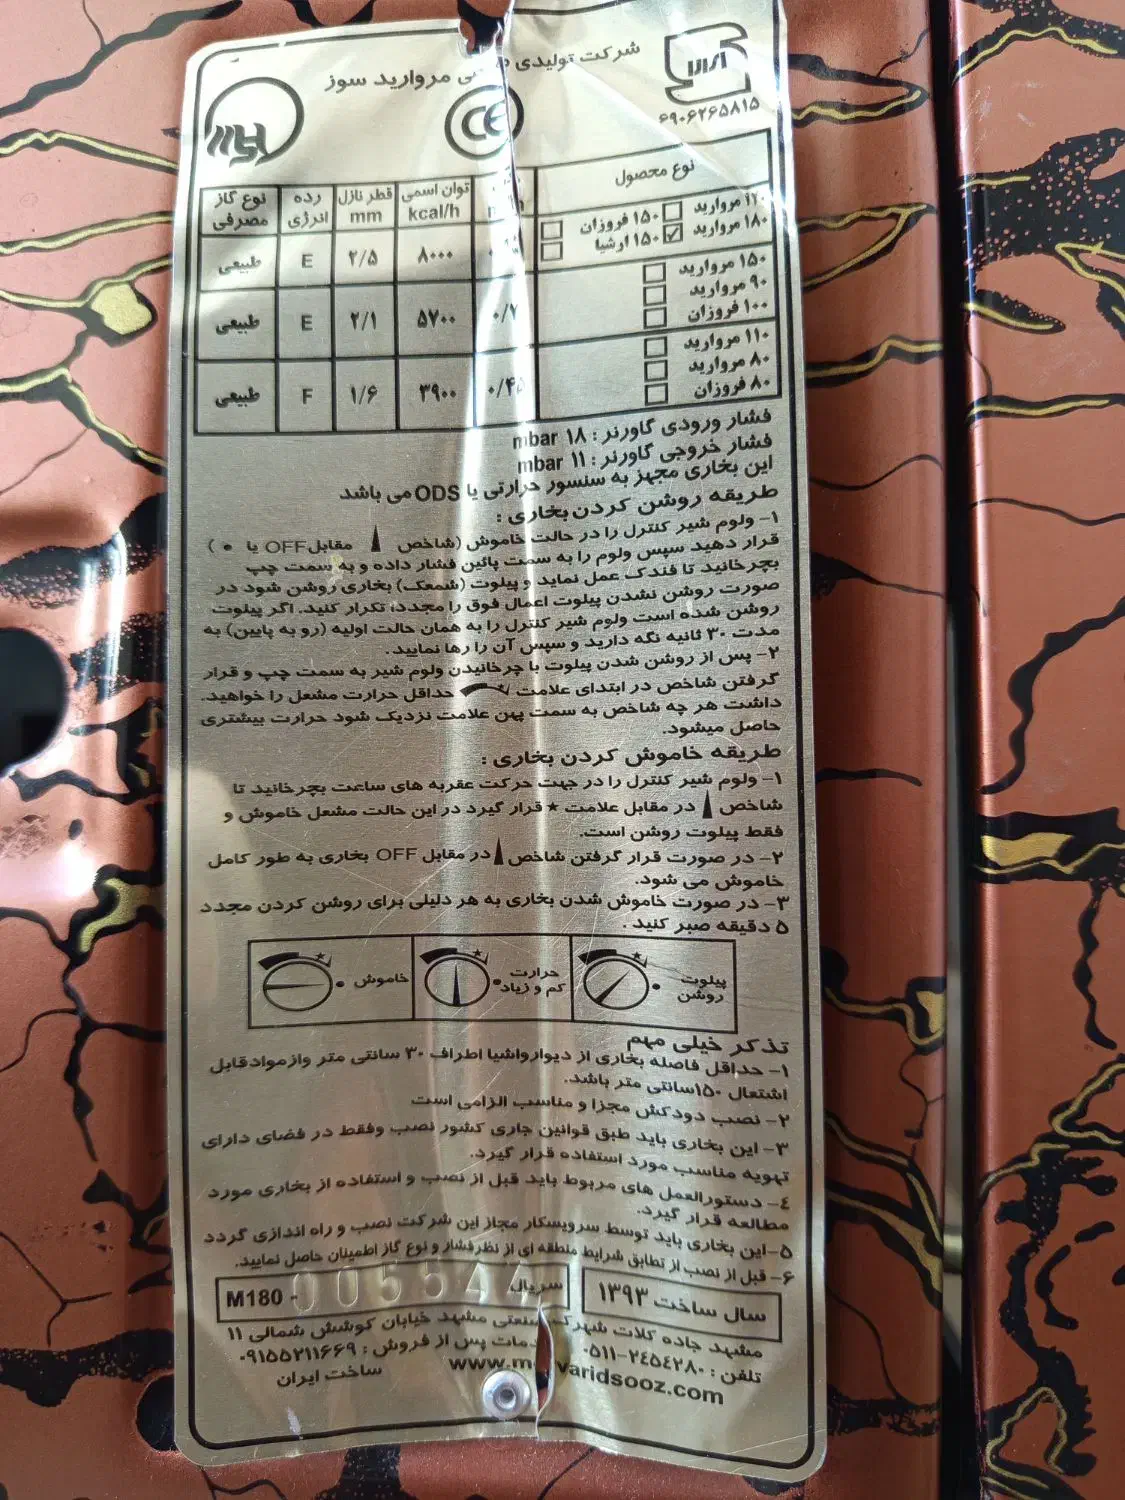 شرکت تولیدی مروارید سوز
CE
۶۹۰۶۲۶۵۸۱۵
نوع محصول
توان اسمی kcal/h
قطر نازل mm
رده انرژی
نوع گاز مصرفی
۱۲۰ مروارید
۱۵۰ فروزان
۱۸۰ مروارید
۱۵۰ ارشیا
۸۰۰۰ ۲/۵ E طبیعی
۱۵۰ مروارید
۹۰ مروارید
۱۰۰ فروزان
۰/۷ ۵۷۰۰ ۲/۱ E طبیعی
۱۱۰ مروارید
۸۰ مروارید
۸۰ فروزان
۰/۴۵ ۳۹۰۰ ۱/۶ F طبیعی
فشار ورودی گاورنر : ۱۸ mbar
فشار خروجی گاورنر : ۱۱ mbar
این بخاری مجهز به سنسور حرارتی یا ODS می باشد
طریقه روشن کردن بخاری :
۱- ولوم شیر کنترل را در حالت خاموش (شاخص مقابل OFF یا •)
قرار دهید سپس ولوم را به سمت پائین فشار داده و به سمت چپ
بچرخانید تا فندک عمل نماید و پیلوت (شمعک) بخاری روشن شود در
صورت روشن نشدن پیلوت اعمال فوق را مجدد، تکرار کنید. اگر پیلوت
روشن شده است ولوم شیر کنترل را به همان حالت اولیه (رو به پایین) به
مدت ۳۰ ثانیه نگه دارید و سپس آن را رها نمایید.
۲- پس از روشن شدن پیلوت با چرخانیدن ولوم شیر به سمت چپ و قرار
گرفتن شاخص در ابتدای علامت حداقل حرارت مشعل را خواهید.
داشت هر چه شاخص به سمت پهن علامت نزدیک شود حرارت بیشتری
حاصل میشود.
طریقه خاموش کردن بخاری :
۱- ولوم شیر کنترل را در جهت حرکت عقربه های ساعت بچرخانید تا
شاخص در مقابل علامت ★ قرار گیرد در این حالت مشعل خاموش و
فقط پیلوت روشن است.
۲- در صورت قرار گرفتن شاخص در مقابل OFF بخاری به طور کامل
خاموش می شود.
۳- در صورت خاموش شدن بخاری به هر دلیلی برای روشن کردن مجدد
۵ دقیقه صبر کنید .
پیلوت روشن
حرارت کم و زیاد
خاموش
تذکر خیلی مهم
۱- حداقل فاصله بخاری از دیوارواشیا اطراف ۳۰ سانتی متر وازموادقابل
اشتعال ۱۵۰سانتی متر باشد.
۲- نصب دودکش مجزا و مناسب الزامی است
۳- این بخاری باید طبق قوانین جاری کشور نصب وفقط در فضای دارای
تهویه مناسب مورد استفاده قرار گیرد.
٤- دستورالعمل های مربوط باید قبل از نصب و استفاده از بخاری مورد
مطالعه قرار گیرد.
۵-این بخاری باید توسط سرویسکار مجاز این شرکت نصب و راه اندازی گردد
۶- قبل از نصب از تطابق شرایط منطقه ای از نظر فشار و نوع گاز اطمینان حاصل نمایید.
سال ساخت ۱۳۹۳
سریال
M180 -
مشهد جاده کلات شهرک صنعتی مشهد خیابان کوشش شمالی ۱۱
تلفن : ۲٤۵٤۲۸۰-۰۵۱۱ خدمات پس از فروش : ۰۹۱۵۵۲۱۱۶۶۹
www.morvaridsooz.com
ساخت ایران